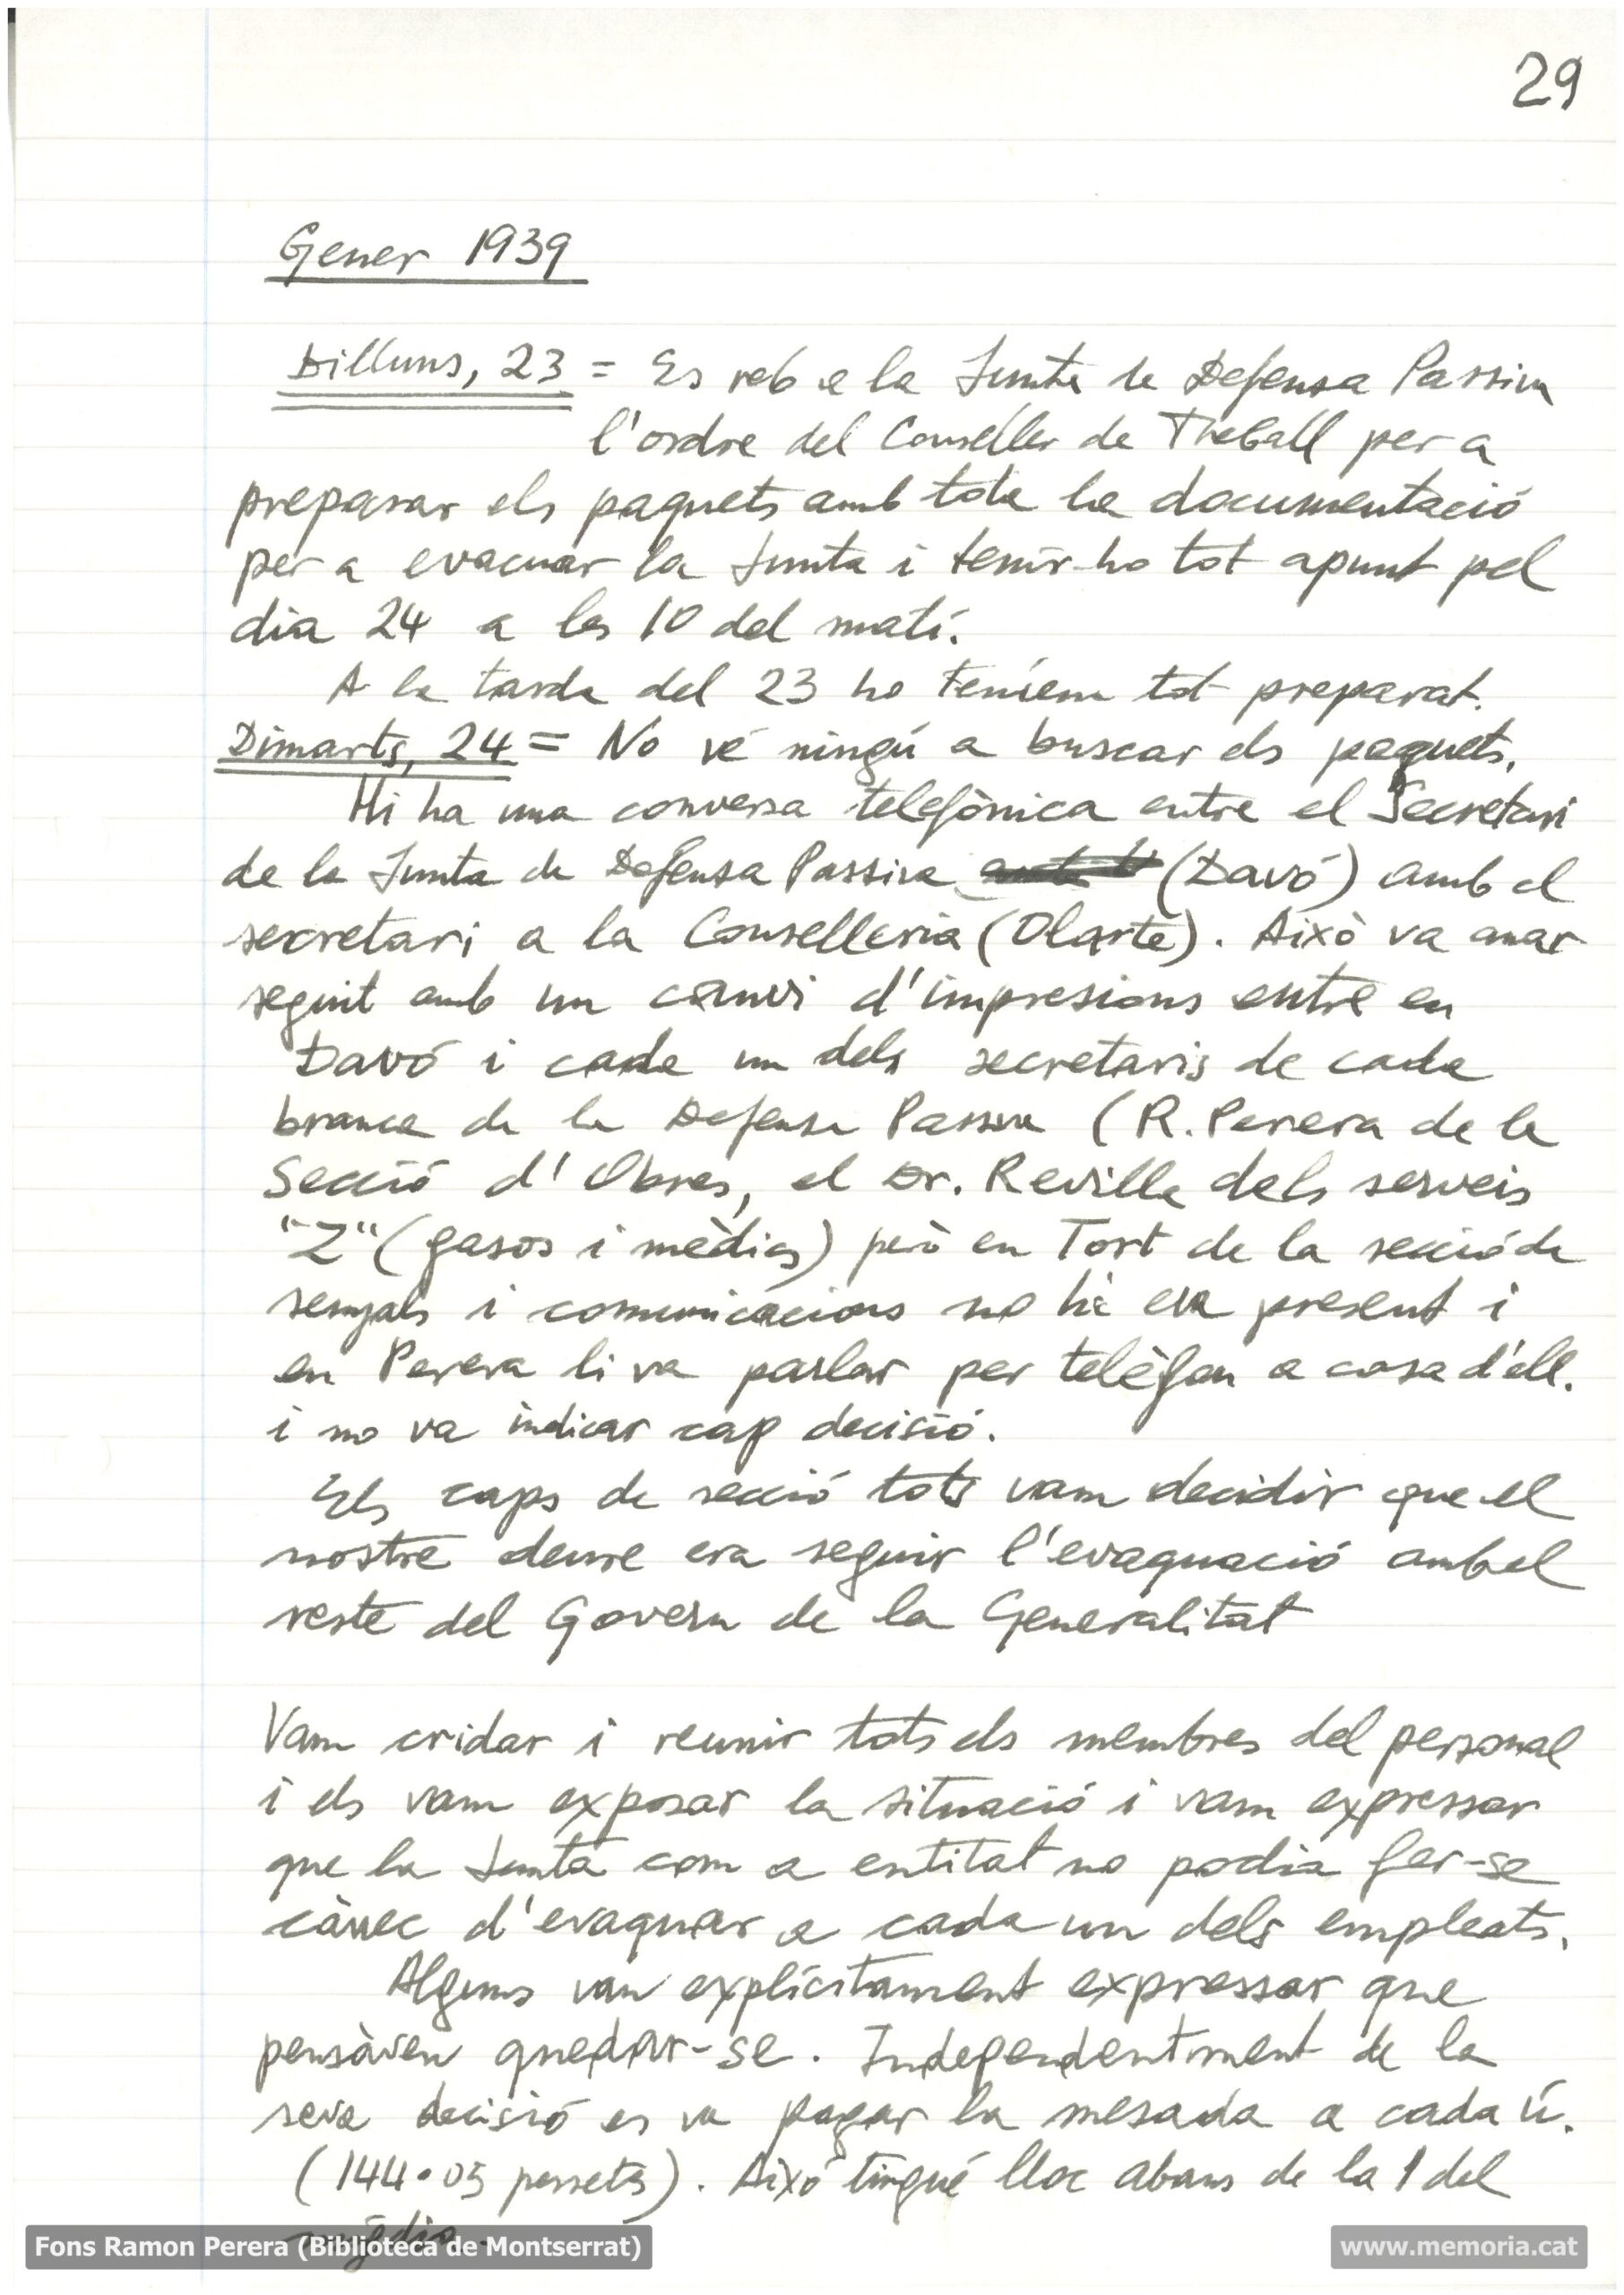 29
Gener 1939
Dilluns, 23 = Es reb a la Junta de Defensa Passiva
l'ordre del Conseller de Treball per a
preparar els paquets amb tota la documentació
per a evacuar la Junta i tenir-ho tot apunt pel
dia 24 a les 10 del matí.
A la tarda del 23 ho teníem tot preparat.
Dimarts, 24 = No vé ningú a buscar els paquets.
Hi ha una conversa telefònica entre el Secretari
de la Junta de Defensa Passiva (Davó) amb el
secretari a la Conselleria (Olarte). Això va anar
seguit amb un canvi d'impresions entre en
Davó i cada un dels secretaris de cada
branca de la Defensa Passiva (R. Perera de la
Secció d'Obres, el Dr. Revilla dels serveis
"Z" (gasos i mèdics) però en Tort de la secció de
senyals i comunicacions no hi era present i
en Perera li va parlar per telèfon a casa d'ell.
i no va indicar cap decisió.
Els caps de secció tots vam decidir que el
nostre deure era seguir l'evaquació amb el
reste del Govern de la Generalitat
Vam cridar i reunir tots els membres del personal
i els vam exposar la situació i vam expressar
que la Junta com a entitat no podia fer-se
càrrec d'evaquar a cada un dels empleats.
Alguns van explícitament expressar que
pensàven quedar-se. Independentment de la
seva decisió es va pagar la mesada a cada ú.
(144.05 pessetes). Aixó tingué lloc abans de la 1 del
migdia.
Fons Ramon Perera (Biblioteca de Montserrat)
www.memoria.cat